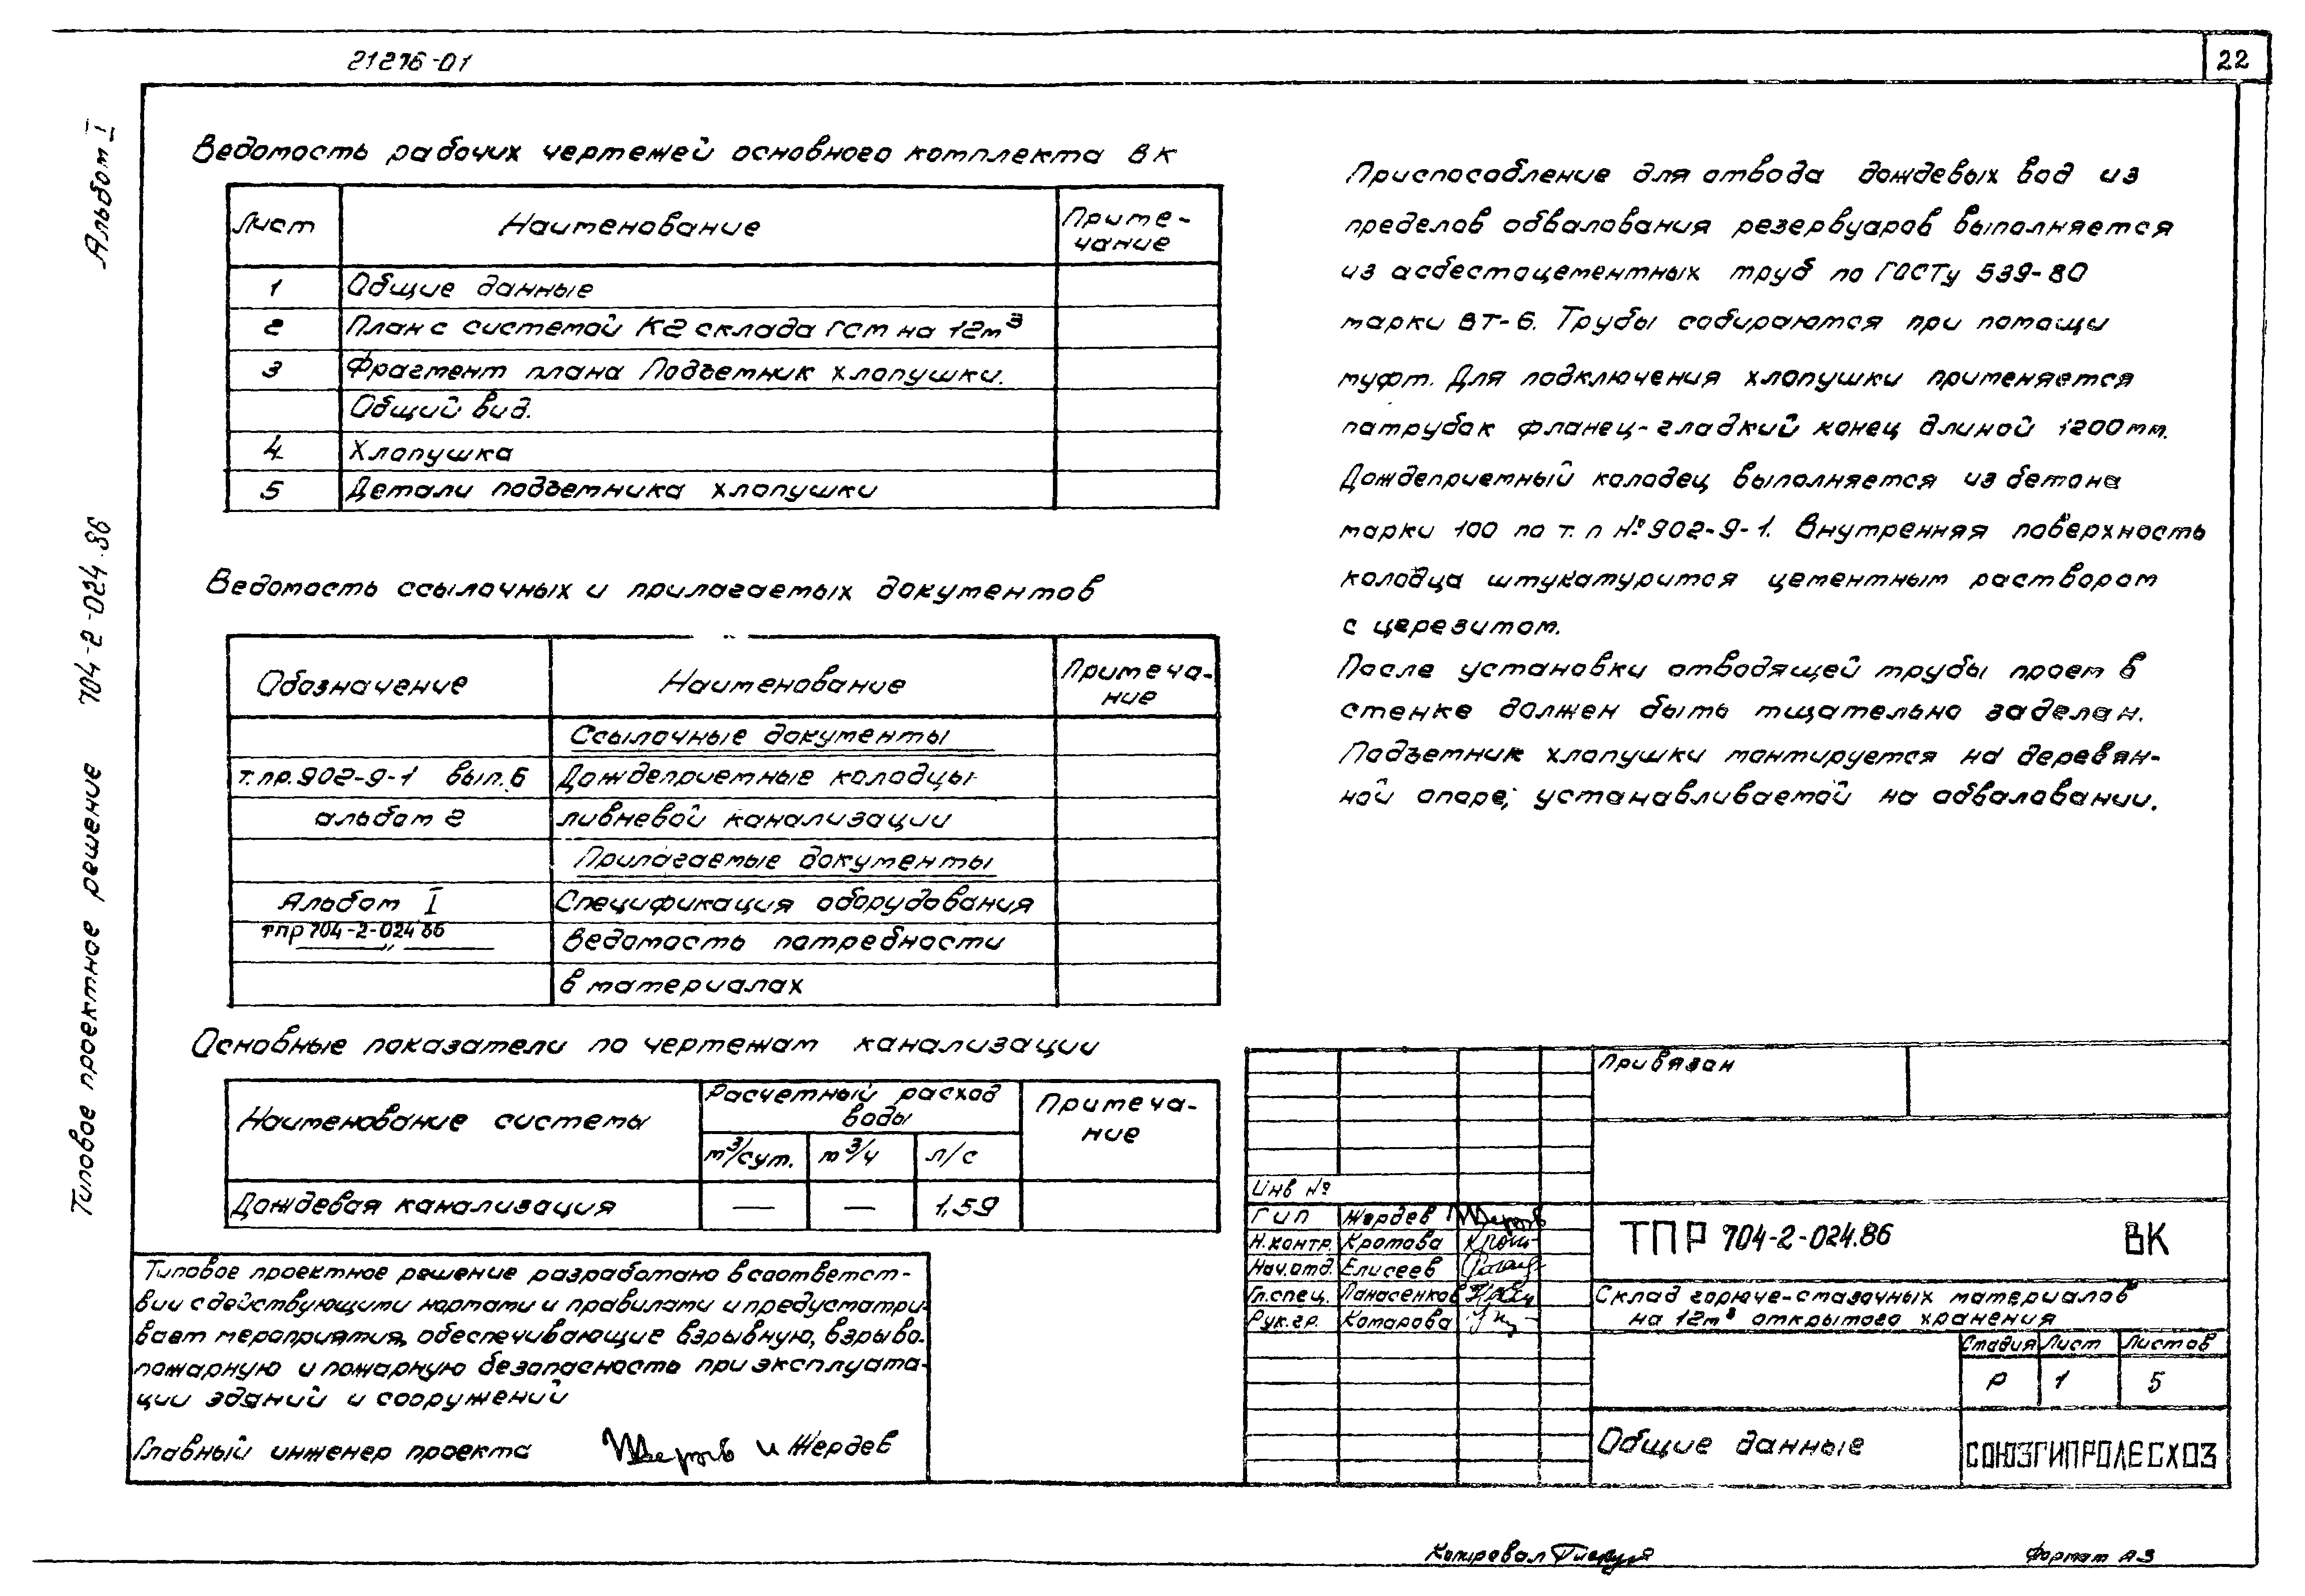 21276-01
22
Альбом I
Типовое проектное решение 704-2-024.86
Ведомость рабочих чертежей основного комплекта ВК
Лист Наименование Приме-
чание
1 Общие данные
2 План с системой К2 склада ГСМ на 12м³
3 Фрагмент плана Подъемник хлопушки.
Общий вид.
4 Хлопушка
5 Детали подъемника хлопушки
Ведомость ссылочных и прилагаемых документов
Обозначение Наименование Примеча-
ние
Ссылочные документы
т.пр.902-9-1 вып.6 Дождеприемные колодцы
альбом 2 ливневой канализации
Прилагаемые документы
Альбом I Спецификация оборудования
тпр 704-2-024.86
—„— Ведомость потребности
в материалах
Основные показатели по чертежам канализации
Наименование системы Расчетный расход
воды Примеча-
ние
м³/сут. м³/ч л/с
Дождевая канализация — — 1,59
Типовое проектное решение разработано в соответст-
вии с действующими нормами и правилами и предусматри-
вает мероприятия, обеспечивающие взрывную, взрыво-
пожарную и пожарную безопасность при эксплуата-
ции зданий и сооружений
Главный инженер проекта И Жердев
Приспособление для отвода дождевых вод из
пределов обвалования резервуаров выполняется
из асбестоцементных труб по ГОСТу 539-80
марки ВТ-6. Трубы собираются при помощи
муфт. Для подключения хлопушки применяется
патрубок фланец-гладкий конец длиной 1200мм.
Дождеприемный колодец выполняется из бетона
марки 100 по т. п №902-9-1. Внутренняя поверхность
колодца штукатурится цементным раствором
с церезитом.
После установки отводящей трубы проем в
стенке должен быть тщательно заделан.
Подъемник хлопушки монтируется на деревян-
ной опоре, устанавливаемой на обваловании.
Привязан
Инв №
ГИП Жердев
Н.контр. Кротова
Нач.отд. Елисеев
Гл.спец. Панасенков
Рук.гр. Комарова
ТПР 704-2-024.86 ВК
Склад горюче-смазочных материалов
на 12м³ открытого хранения
Стадия Лист Листов
Р 1 5
Общие данные СОЮЗГИПРОЛЕСХОЗ
Копировал
Формат А3